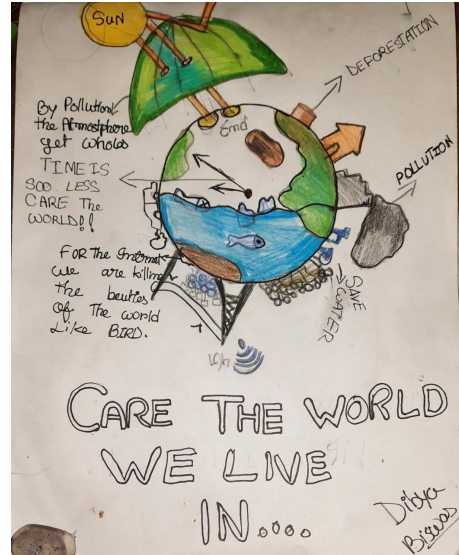 SUN
DEFORESTATION
By Pollution
the Atmostphere
get wholes
End
TIME IS
SOO. LESS
CARE THE
WORLD!!
POLLUTION
FOR THE Internet
we are killing
the beuties
Of The world
Like BIRD.
SAVE
WATER
CARE THE WORLD
WE LIVE
IN....
Dibya
Biswas